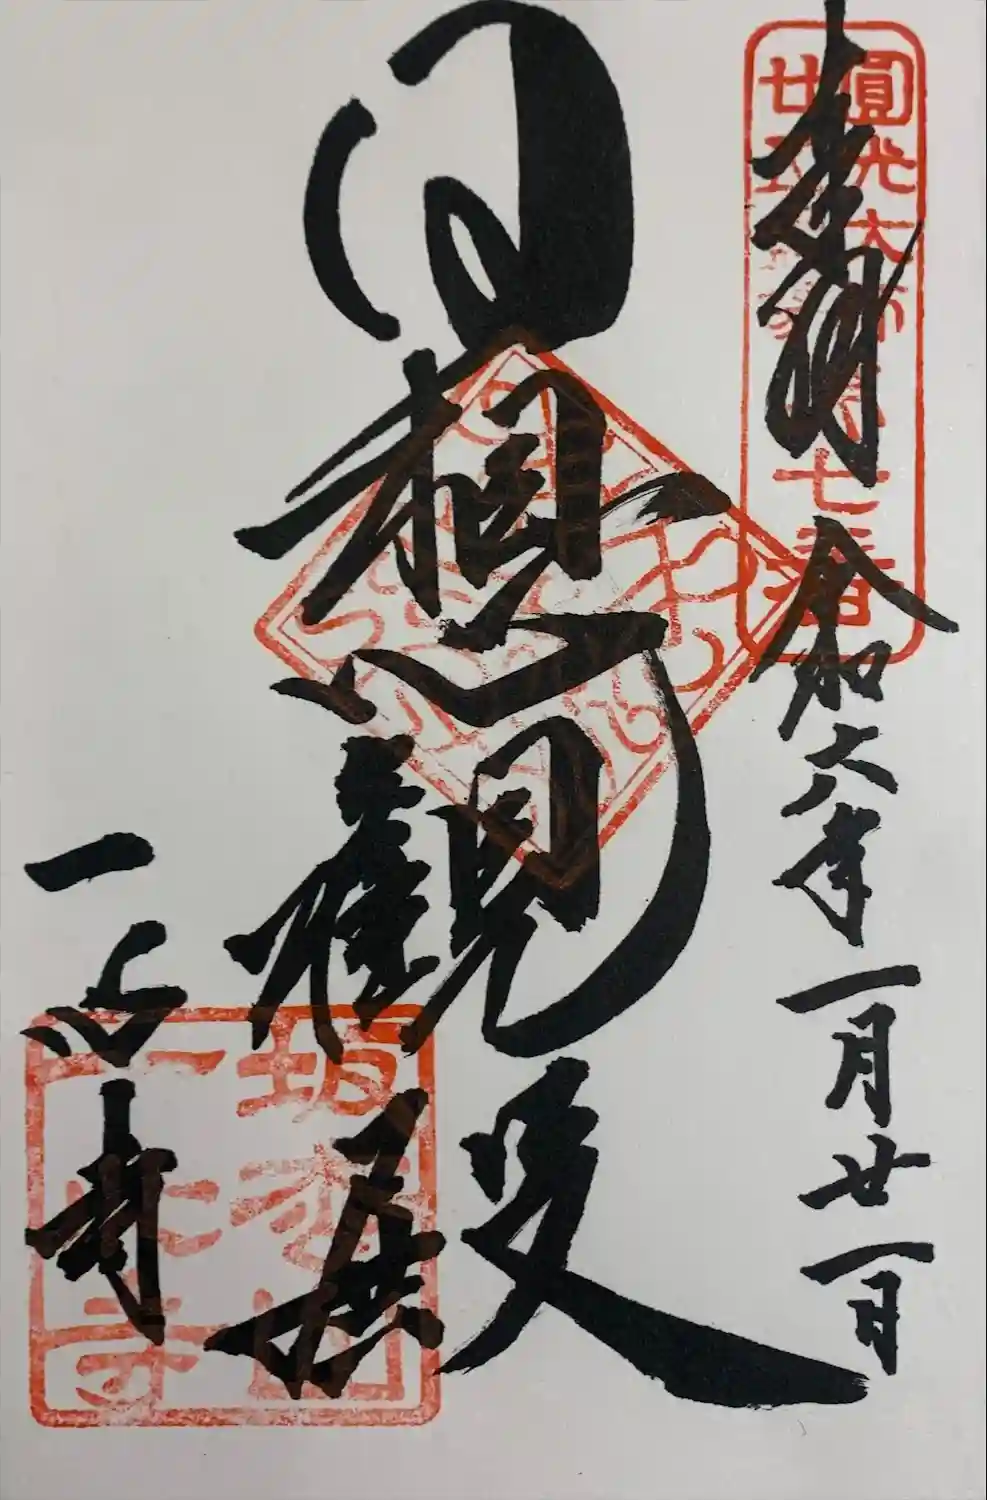 奉拝 令和六年一月廿一日
圓光大師
廿五霊場
第七番
日想観殿
一心寺
坂松山
一心寺